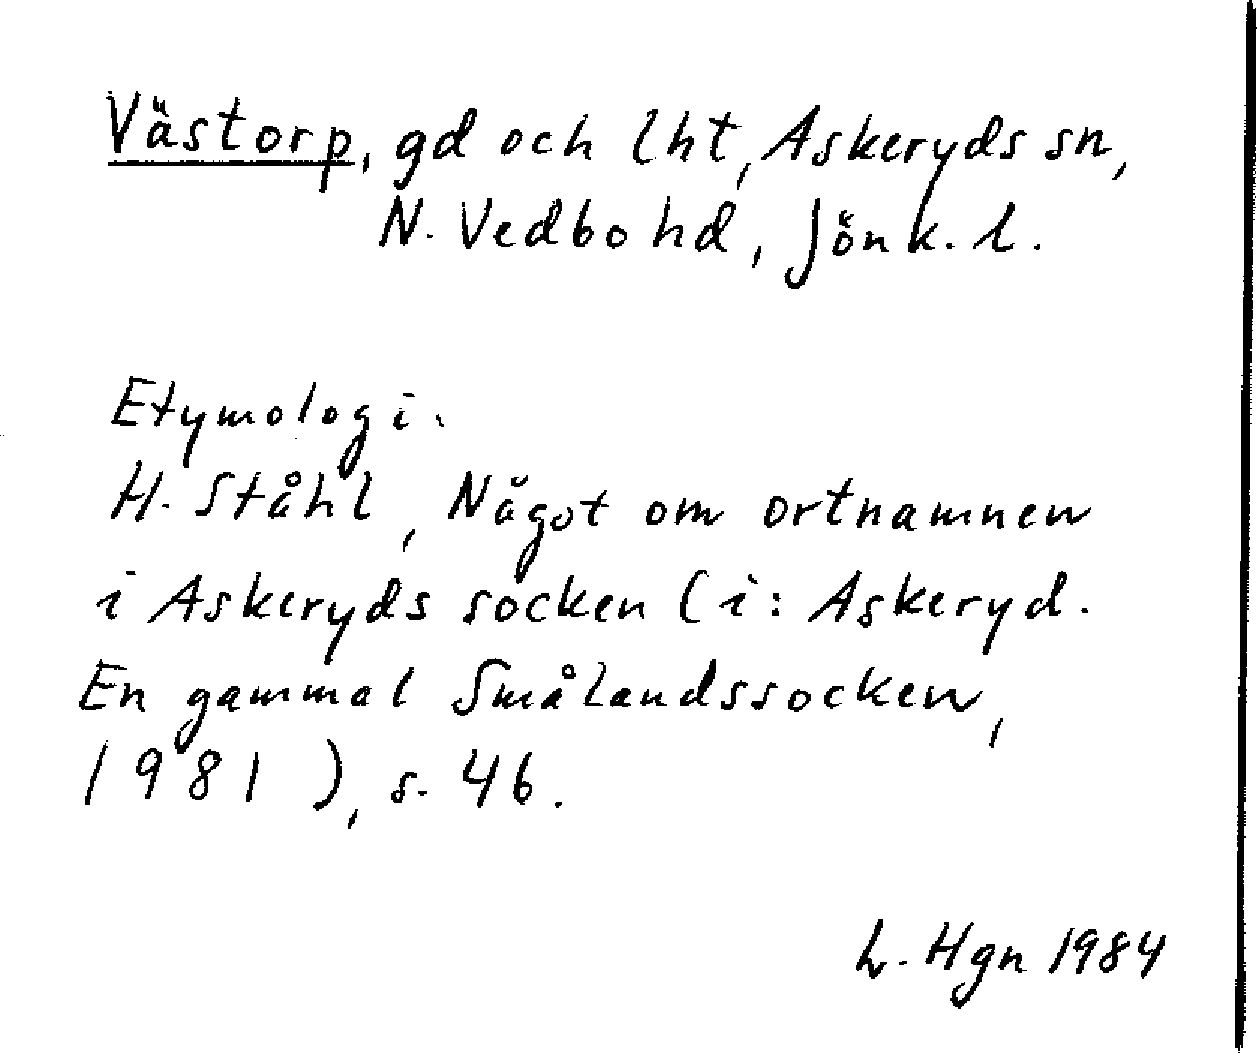 Västorp, gd och lht, Askeryds sn,
N. Vedbo hd, Jönk. l.
Etymologi.
H. Ståhl, Något om ortnamnen
i Askeryds socken (i: Askeryd.
En gammal Smålandssocken,
1981), s. 46.
L. Hgn 1984